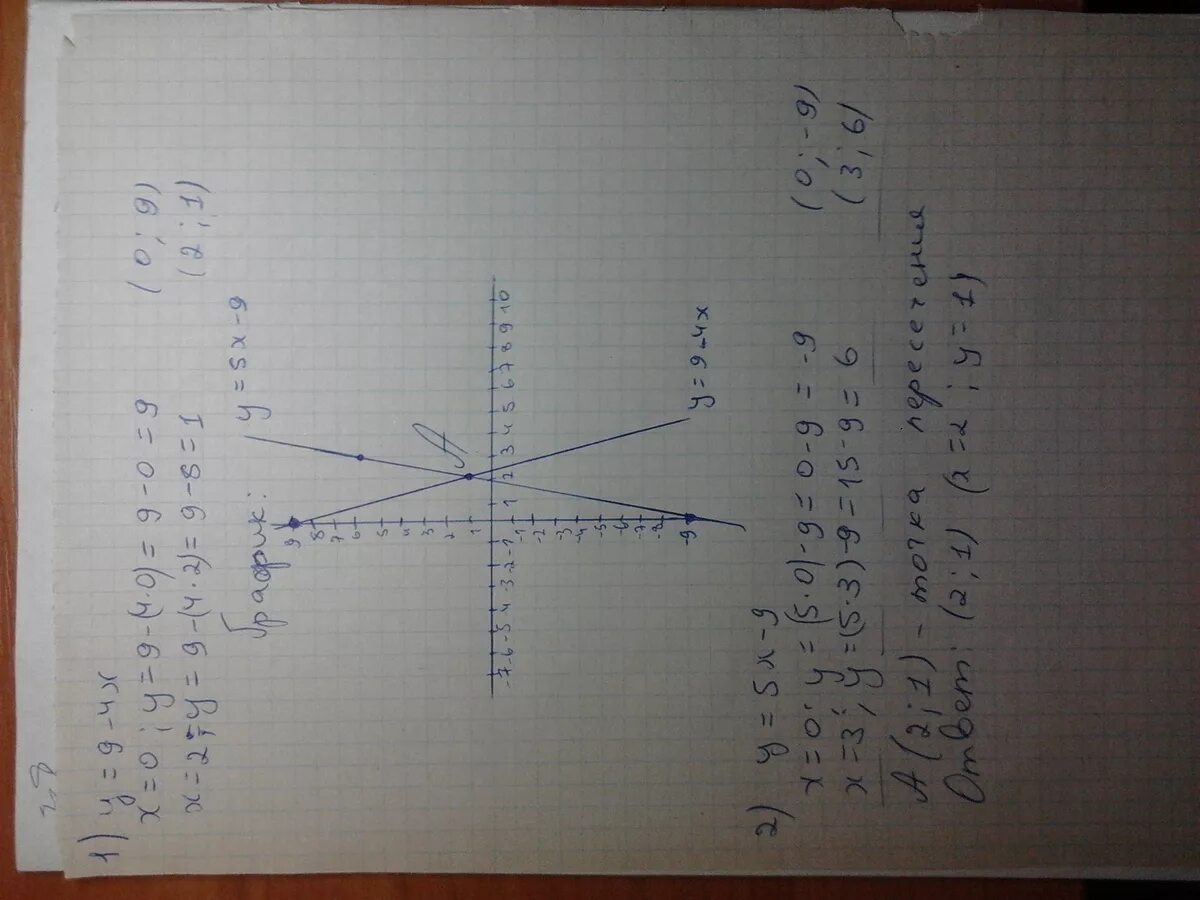 1) y = 9 - 4x
x = 0 ; y = 9 - (4·0) = 9 - 0 = 9 (0 ; 9)
x = 2 ; y = 9 - (4·2) = 9 - 8 = 1 (2 ; 1)
График:
y = 5x - 9
9
8
7
6
5
4
3
2
1
A
-7 -6 -5 -4 -3 -2 -1 1 2 3 4 5 6 7 8 9 10
-1
-2
-3
-4
-5
-6
-7
-8
-9
y = 9 - 4x
2) y = 5x - 9
x = 0 ; y = (5·0) - 9 = 0 - 9 = -9 (0 ; -9)
x = 3 ; y = (5·3) - 9 = 15 - 9 = 6 (3 ; 6)
A (2 ; 1) - точка пересечения
Ответ: (2 ; 1) (x = 2 ; y = 1)